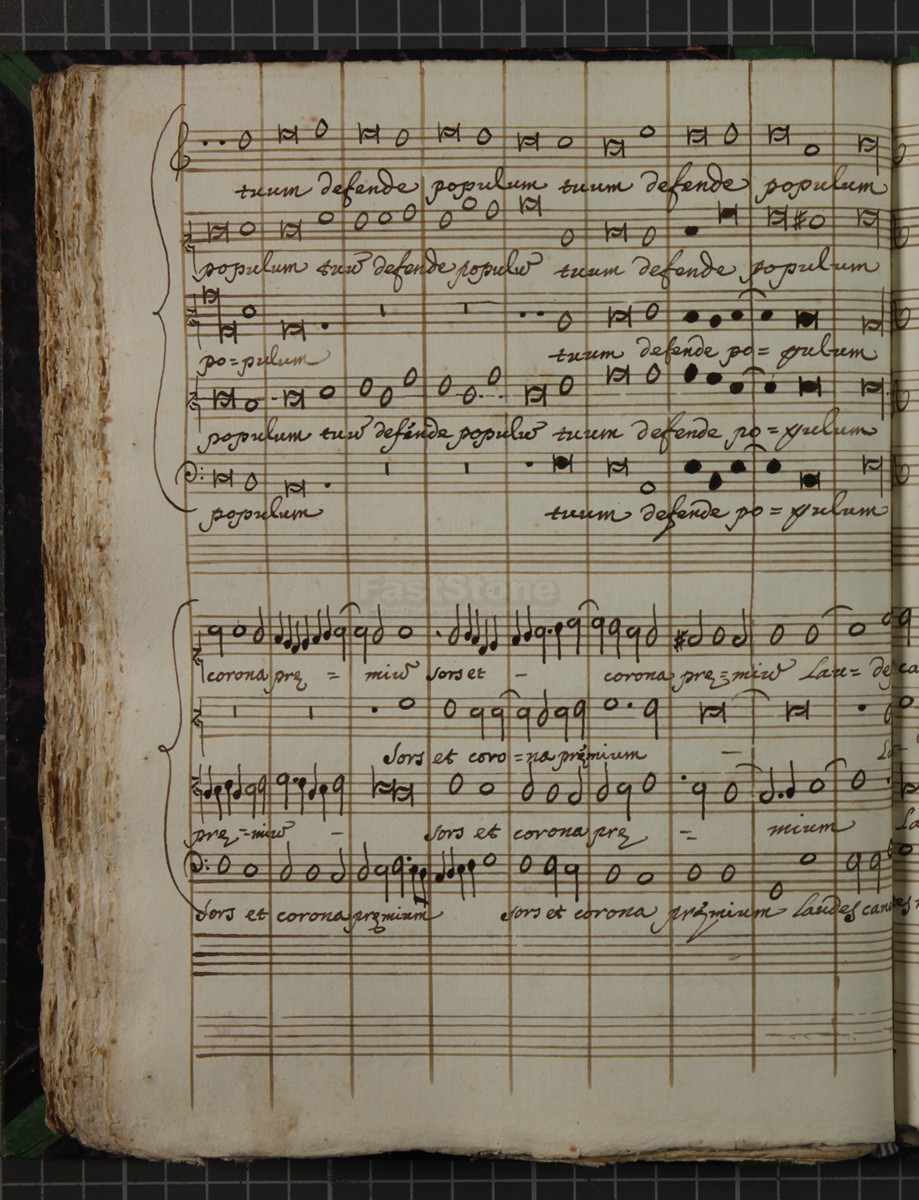 tuum defende populum tuum defende populum
populum tuũ defende populũ tuum defende populum
po=pulum tuum defende po=pulum
populum tuũ defende populũ tuum defende po=pulum
populum tuum defende po=pulum
FastStone
corona pre = miũ sors et - corona pre=miũ Lau=de
sors et coro=na premium -
pre=miũ - sors et corona pre = mium
sors et corona premium sors et corona premium laudes can